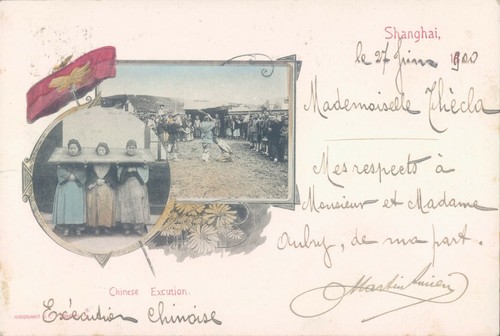 Shanghai,
le 27 Juin 1900
Mademoiselle Thècla
Mes respects à
Monsieur et Madame
Aubry, de ma part.
Chinese Excution.
Exécution Chinoise